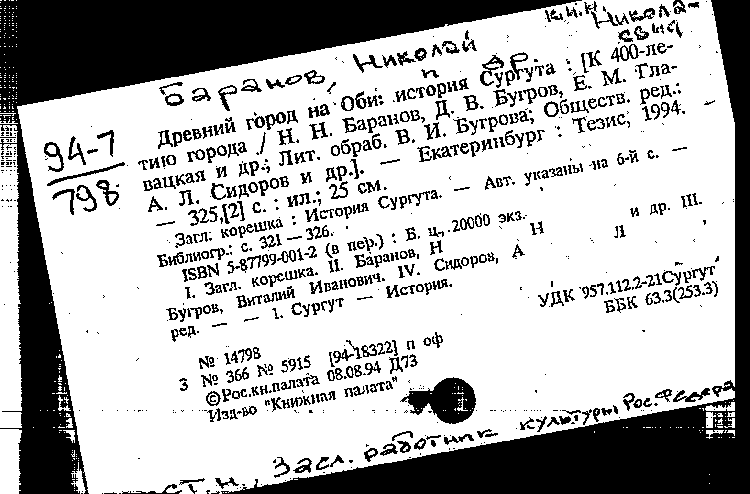 к.и.н. Никола-
евич
Баранов, Николай
и др.
94-7
798
Древний город на Оби: история Сургута : [К 400-ле-
тию города / Н. Н. Баранов, Д. В. Бугров, Е. М. Гла-
вацкая и др.; Лит. обраб. В. И. Бугрова; Обществ. ред.:
А. Л. Сидоров и др.]. — Екатеринбург : Тезис, 1994. —
— 325,[2] с. : ил.; 25 см.
Загл. корешка : История Сургута. — Авт. указаны на 6-й с. —
Библиогр.: с. 321—326.
ISBN 5-87799-001-2 (в пер.) : Б. ц., 20000 экз.
I. Загл. корешка. II. Баранов, Н Н и др. III.
Бугров, Виталий Иванович. IV. Сидоров, А Л ,
ред. — — 1. Сургут — История.
УДК 957.112.2-21Сургут
ББК 63.3(253.3)
№ 14798
3 № 366 № 5915 [94-18322] п оф
©Рос.кн.палата 08.08.94 Д73
Изд-во "Книжная палата"
ст.н., засл. работник культуры Рос. Федера